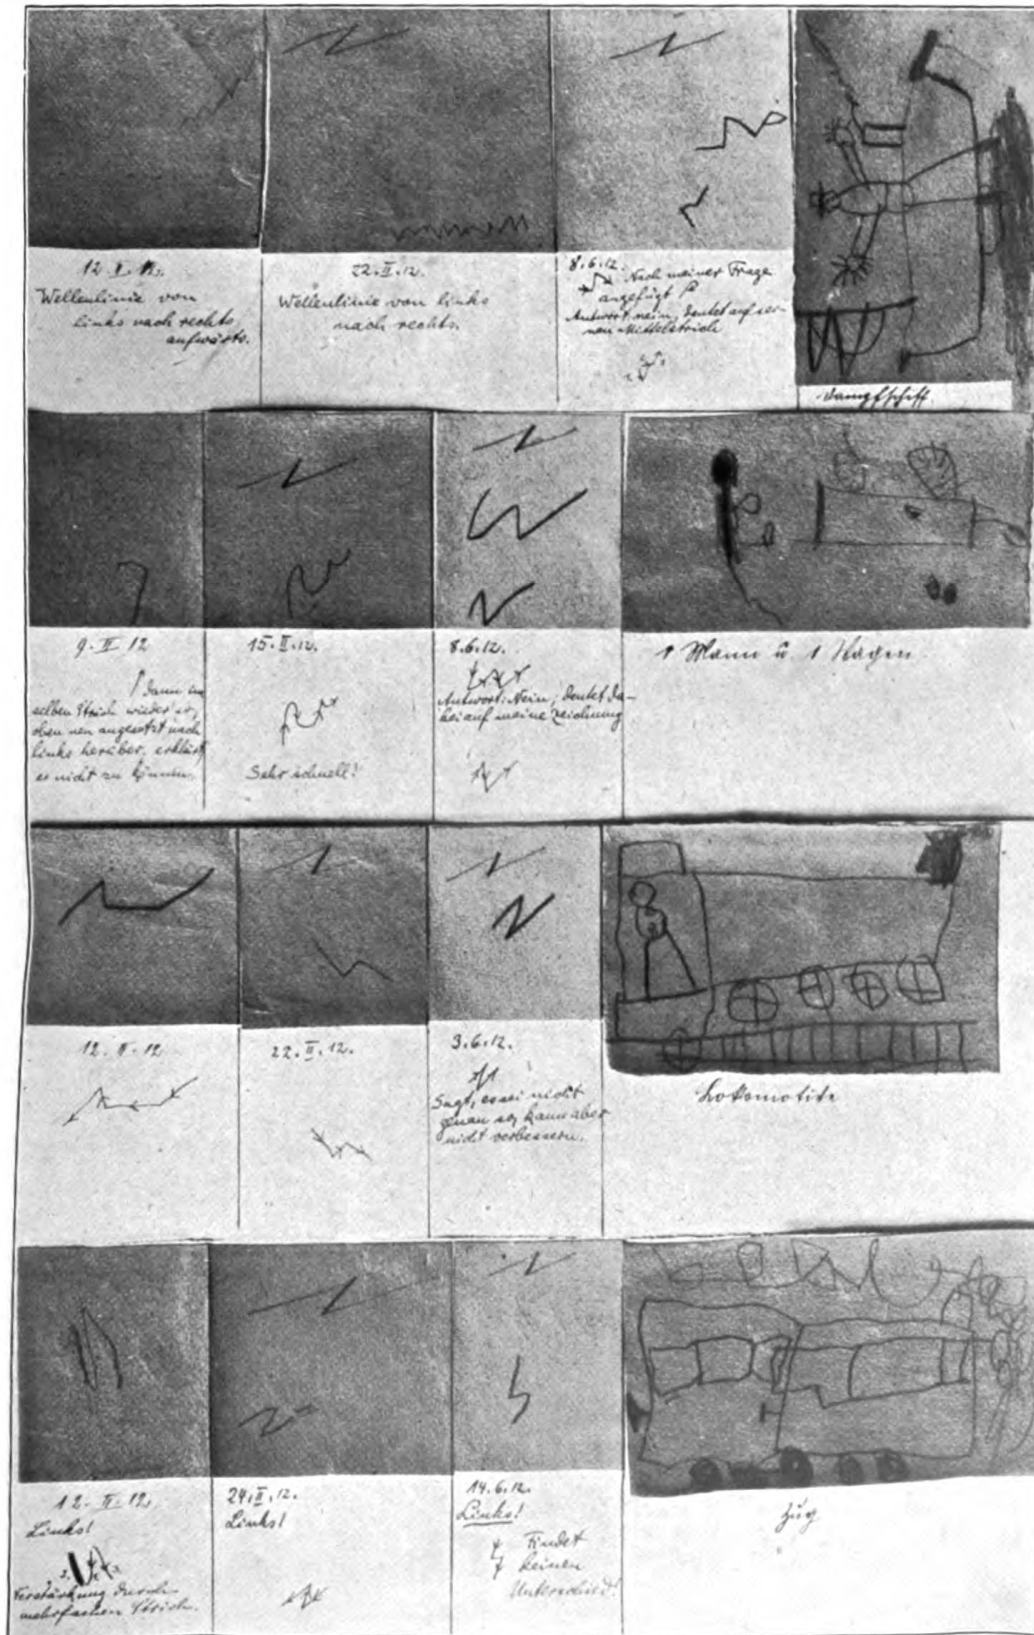 12. II. 12.
Wellenlinie von
links nach rechts
aufwärts.
22. II. 12.
Wellenlinie von links
nach rechts.
8.6.12.
Nach meiner Frage
angefügt
Antwort: nein, deutet auf sei-
nen Mittelstrich
Dampfschiff.
9. II. 12
dann im
selben Strich wieder
oben neu angesetzt nach
links herüber, erklärt
es nicht zu können.
15. II. 12.
Sehr schnell!
8.6.12.
Antwort: Nein; deutet da-
bei auf meine Zeichnung
1 Mann u. 1 Wagen
12. II. 12
22. II. 12.
3.6.12.
Sagt, es sei nicht
genau so, kann aber
nicht verbessern.
Lokomotive
12. II. 12.
Links!
Verstärkung durch
mehrfachen Strich.
24. II. 12.
Links!
14.6.12.
Links!
Findet
keinen
Unterschied!
Zug